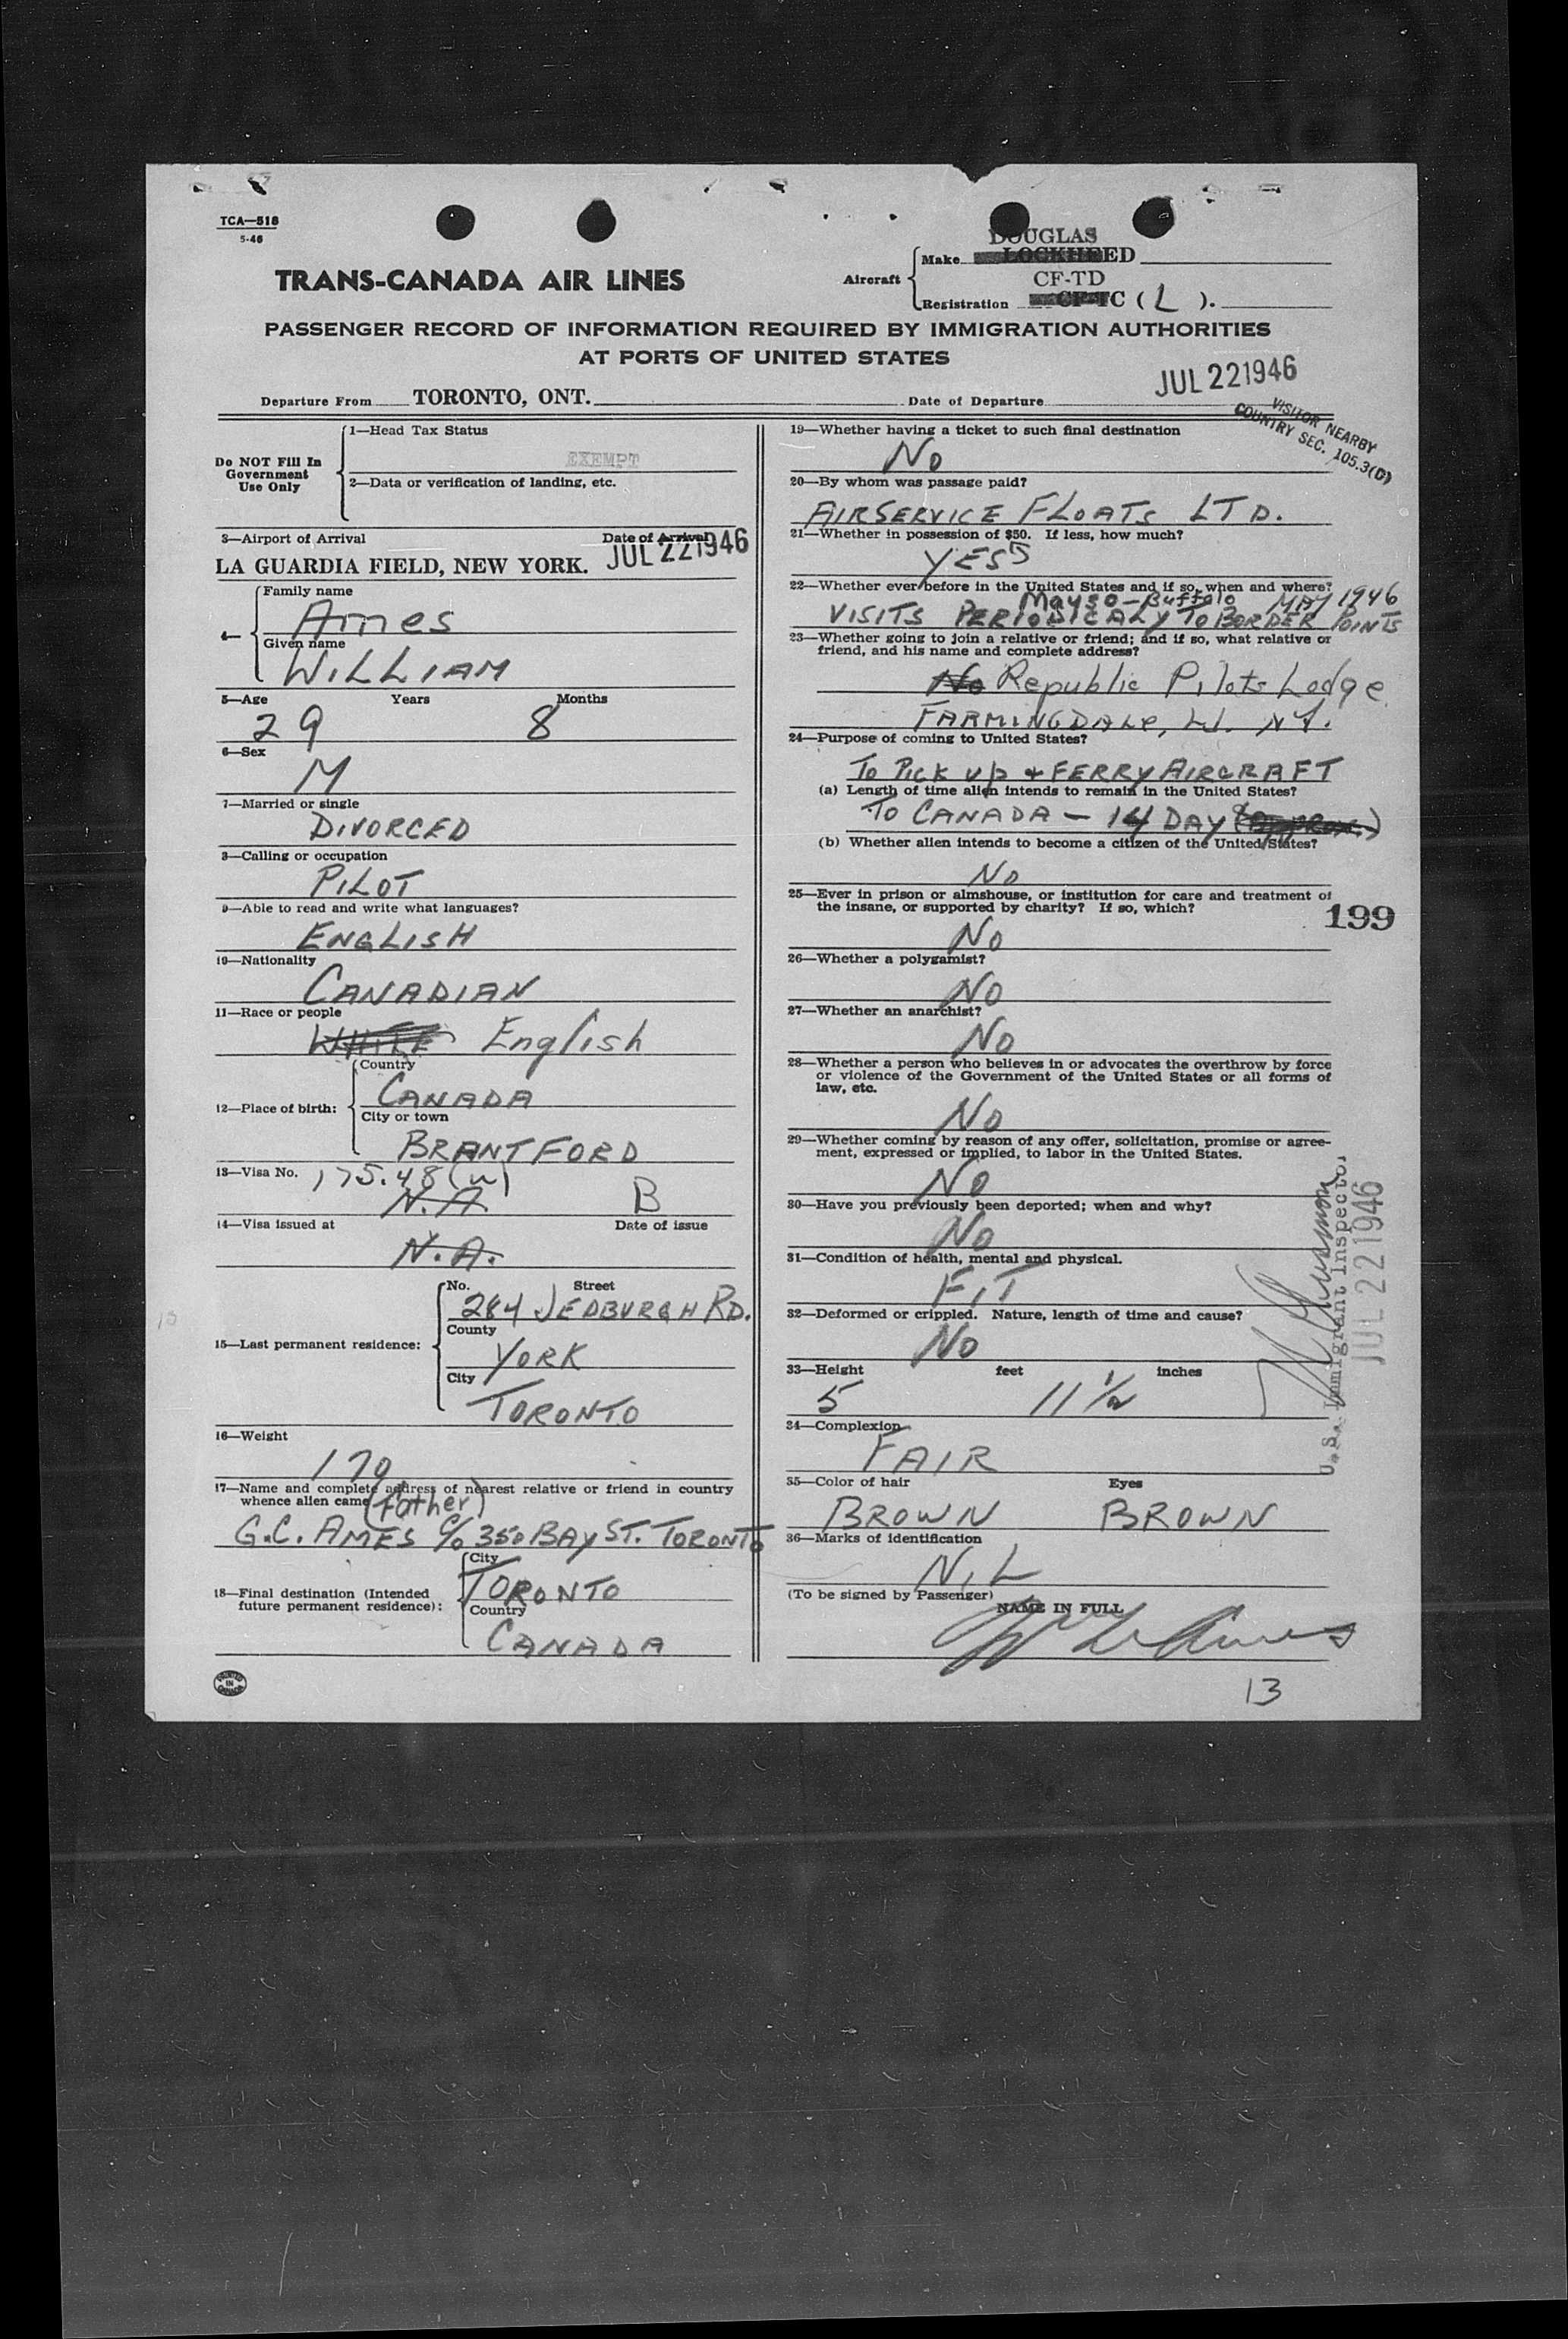 TCA—518
5-46
TRANS-CANADA AIR LINES
Aircraft
DOUGLAS
Make LOCKHEED
CF-TD
Registration CF-TC ( L ).
PASSENGER RECORD OF INFORMATION REQUIRED BY IMMIGRATION AUTHORITIES
AT PORTS OF UNITED STATES
Departure From TORONTO, ONT. Date of Departure JUL 22 1946
VISITOR NEARBY
COUNTRY SEC. 105.3(D)
Do NOT Fill In
Government
Use Only
1—Head Tax Status
EXEMPT
2—Data or verification of landing, etc.
3—Airport of Arrival Date of Arrival
LA GUARDIA FIELD, NEW YORK. JUL 22 1946
4—
Family name
Ames
Given name
WILLIAM
5—Age Years Months
29 8
6—Sex
M
7—Married or single
DIVORCED
8—Calling or occupation
PILOT
9—Able to read and write what languages?
ENGLISH
10—Nationality
CANADIAN
11—Race or people
WHITE English
12—Place of birth:
Country
CANADA
City or town
BRANTFORD
13—Visa No. 175.48
N.A. B
14—Visa issued at Date of issue
N.A.
15—Last permanent residence:
No. Street
284 JEDBURGH RD.
County
YORK
City
TORONTO
16—Weight
170
17—Name and complete address of nearest relative or friend in country
whence alien came (father)
G.C. AMES c/o 350 BAY ST. TORONTO
18—Final destination (Intended
future permanent residence):
City
TORONTO
Country
CANADA
PRINTED
IN
CANADA
19—Whether having a ticket to such final destination
No
20—By whom was passage paid?
AIRSERVICE FLOATS LTD.
21—Whether in possession of $50. If less, how much?
YES
22—Whether ever before in the United States and if so, when and where?
May 30 - Buffalo MAY 1946
VISITS PERIODICALY TO BORDER POINTS
23—Whether going to join a relative or friend; and if so, what relative or
friend, and his name and complete address?
No Republic Pilots Lodge
FARMINGDALE, L.I. N.Y.
24—Purpose of coming to United States?
TO PICK UP + FERRY AIRCRAFT
(a) Length of time alien intends to remain in the United States?
TO CANADA - 14 DAYS (APPROX.)
(b) Whether alien intends to become a citizen of the United States?
No
25—Ever in prison or almshouse, or institution for care and treatment of
the insane, or supported by charity? If so, which?
No
199
26—Whether a polygamist?
No
27—Whether an anarchist?
No
28—Whether a person who believes in or advocates the overthrow by force
or violence of the Government of the United States or all forms of
law, etc.
No
29—Whether coming by reason of any offer, solicitation, promise or agree-
ment, expressed or implied, to labor in the United States.
No
30—Have you previously been deported; when and why?
No
31—Condition of health, mental and physical.
FIT
32—Deformed or crippled. Nature, length of time and cause?
No
33—Height feet inches
5 11 1/2
34—Complexion
FAIR
35—Color of hair Eyes
BROWN BROWN
36—Marks of identification
NIL
(To be signed by Passenger)
NAME IN FULL
Ames
13
U.S. Immigrant Inspector
JUL 22 1946